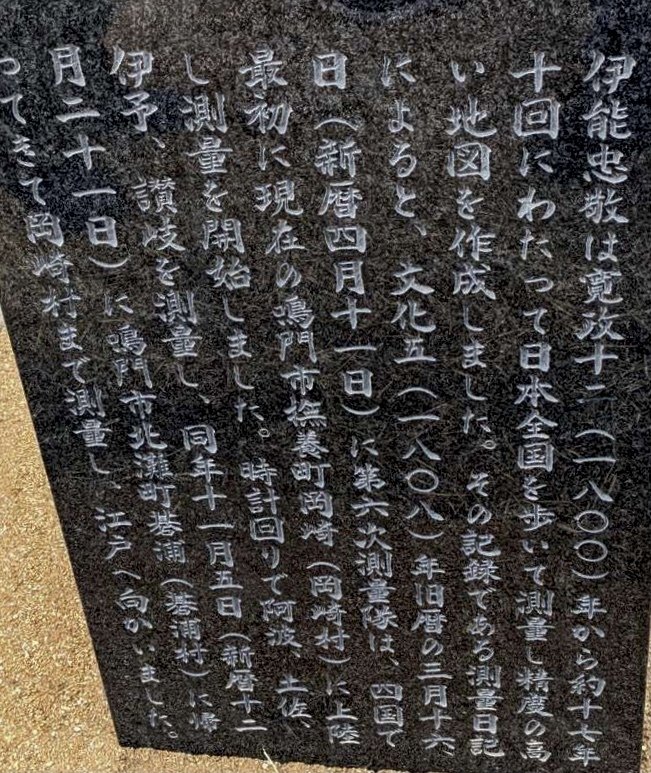 伊能忠敬は寛政十二(一八〇〇)年から約十七年
十回にわたって日本全国を歩いて測量し精度の高
い地図を作成しました。その記録である測量日記
によると、文化五(一八〇八)年旧暦の三月十六、
日(新暦四月十一日)に第六次測量隊は、四国で
最初に現在の鳴門市撫養町岡崎(岡崎村)に上陸
し測量を開始しました。時計回りで阿波、土佐、
伊予、讃岐を測量し、同年十一月五日(新暦十二
月二十一日)に鳴門市北灘町碁浦(碁浦村)に帰
ってきて岡崎村まで測量し、江戸へ向かいました。